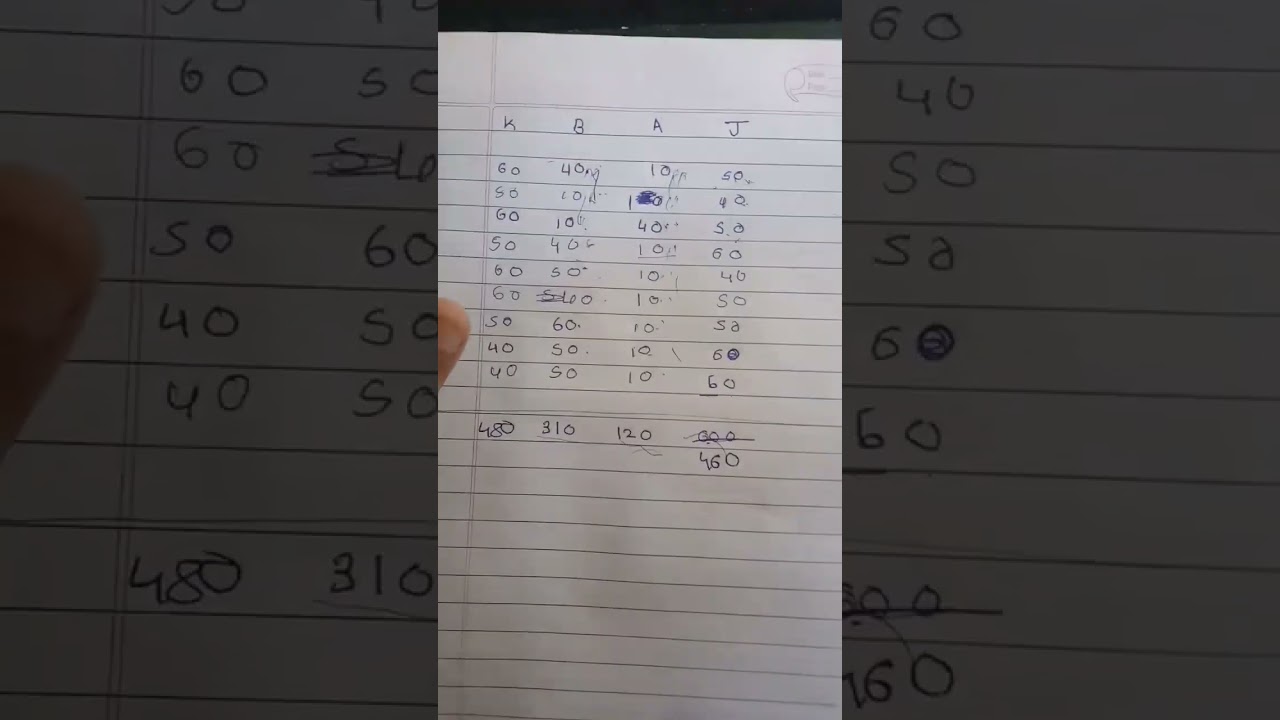 K B A J
60 40 10 50
50 10 10 40
60 10 40 50
50 40 10 60
60 50 10 40
60 40 10 50
50 60 10 50
40 50 10 60
40 50 10 60
480 310 120
460